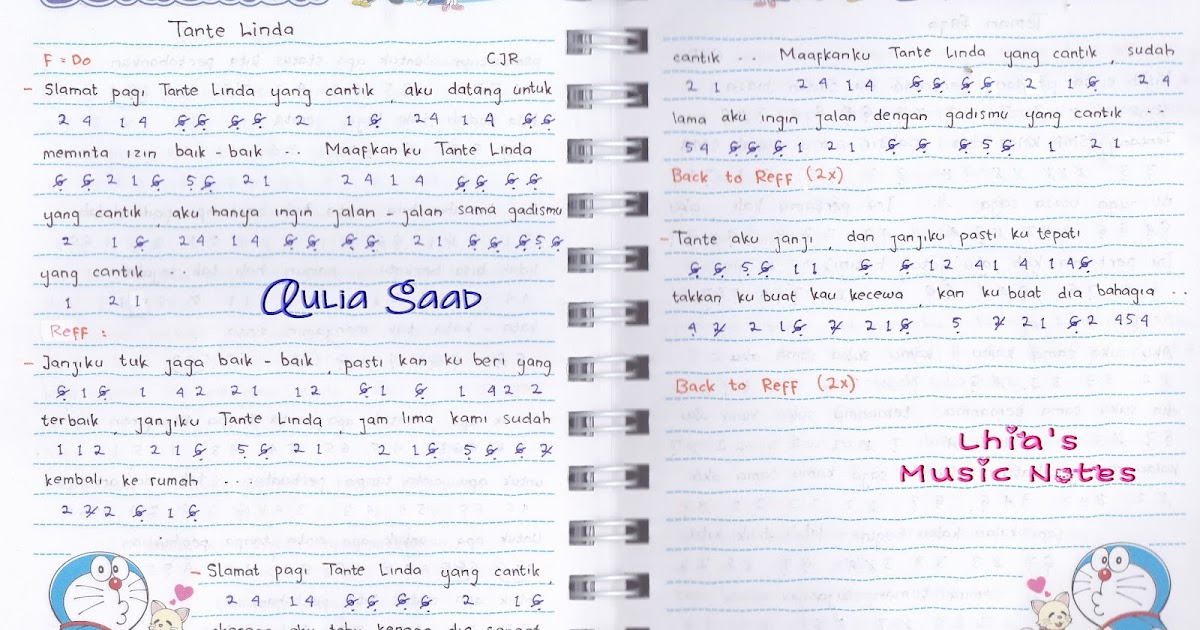 Tante Linda
F = Do CJR
- Slamat pagi Tante Linda yang cantik , aku datang untuk
2 4 1 4 6 6 6 6 2 1 6 2 4 1 4 6 6
meminta izin baik - baik .. Maafkanku Tante Linda
6 6 2 1 6 5 6 2 1 2 4 1 4 6 6 6 6
yang cantik , aku hanya ingin jalan - jalan sama gadismu
2 1 6 2 4 1 4 6 6 6 6 2 1 6 6 6 5 6
yang cantik ...
1 2 1
Aulia Saad
Reff :
- Janjiku tuk jaga baik - baik , pasti kan ku beri yang
6 1 6 1 4 2 2 1 1 2 6 1 6 1 4 2 2
terbaik , janjiku Tante Linda , jam lima kami sudah
1 1 2 2 1 6 5 6 2 1 2 1 6 5 6 6 7
kembali ke rumah ...
2 7 2 6 1 6
- Slamat pagi Tante Linda yang cantik ,
2 4 1 4 6 6 6 6 2 1 6
cantik .. Maafkanku Tante Linda yang cantik , sudah
2 1 2 4 1 4 6 6 6 6 2 1 6 2 4
lama aku ingin jalan dengan gadismu yang cantik ...
5 4 6 6 6 1 2 1 6 6 6 5 6 1 2 1
Back to Reff (2x)
- Tante aku janji , dan janjiku pasti ku tepati
6 6 5 6 1 1 6 6 1 2 4 1 4 1 4 6
takkan ku buat kau kecewa , kan ku buat dia bahagia ..
4 7 2 1 6 7 2 1 6 5 7 2 1 6 2 4 5 4
Back to Reff (2x)
Lhia's
Music Notes